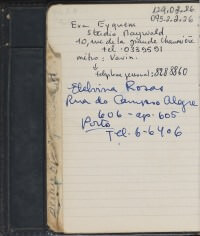 129.02.26
093.2.2.26
Eva Eyquem
Studio Maywald
10, rue de la grande Chaumière
tel. 0339591
métro: Vavin.
téléphone personnel: 8288860
Etelvina Rosas
Rua do Campo Alegre
606 - ap. 605
Porto
Tel. 6-6406